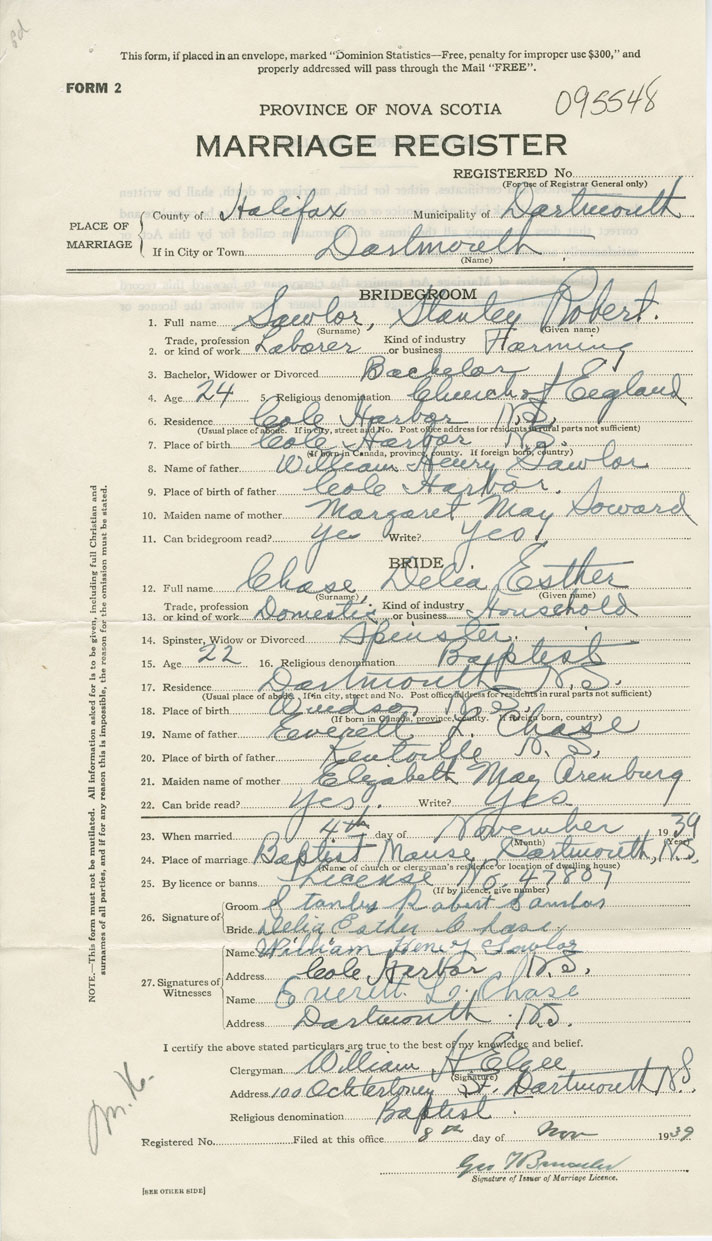 This form, if placed in an envelope, marked "Dominion Statistics—Free, penalty for improper use $300," and
properly addressed will pass through the Mail "FREE".
FORM 2
095548
PROVINCE OF NOVA SCOTIA
MARRIAGE REGISTER
REGISTERED No.
(For use of Registrar General only)
PLACE OF MARRIAGE
County of Halifax Municipality of Dartmouth
If in City or Town Dartmouth
(Name)
BRIDEGROOM
1. Full name Sawlor, Stanley Robert.
(Surname) (Given name)
2. Trade, profession or kind of work Laborer Kind of industry or business Farming
3. Bachelor, Widower or Divorced Bachelor
4. Age 24 5. Religious denomination Church of England
6. Residence Cole Harbor N.S.
(Usual place of abode. If in city, street and No. Post office address for residents in rural parts not sufficient)
7. Place of birth Cole Harbor N.S.
(If born in Canada, province, county. If foreign born, country)
8. Name of father William Henry Sawlor
9. Place of birth of father Cole Harbor.
10. Maiden name of mother Margaret May Soward
11. Can bridegroom read? Ye Write? Yes.
BRIDE
12. Full name Chase, Delia Esther
(Surname) (Given name)
13. Trade, profession or kind of work Domestic Kind of industry or business Household
14. Spinster, Widow or Divorced Spinster.
15. Age 22 16. Religious denomination Baptist
17. Residence Dartmouth N.S.
(Usual place of abode. If in city, street and No. Post office address for residents in rural parts not sufficient)
18. Place of birth Windsor N.S.
(If born in Canada, province, county. If foreign born, country)
19. Name of father Everett L. Chase
20. Place of birth of father Kentville N.S.
21. Maiden name of mother Elizabeth May Arenburg
22. Can bride read? Yes. Write? Yes
23. When married 4th day of November 1939
(Month) (Year)
24. Place of marriage Baptist Manse, Dartmouth, N.S.
(Name of church or clergyman's residence or location of dwelling house)
25. By licence or banns License No. 47807
(If by licence, give number)
26. Signature of
Groom Stanley Robert
Bride Delia Esther Chase
27. Signatures of Witnesses
Name William Henry Sawlor
Address Cole Harbor N.S.
Name Everett L. Chase
Address Dartmouth N.S.
I certify the above stated particulars are true to the best of my knowledge and belief.
Clergyman William H Elgee
(Signature)
Address 100 Ochterloney St. Dartmouth N.S.
Religious denomination Baptist.
Registered No. Filed at this office 8th day of Nov 1939
Geo
Signature of Issuer of Marriage Licence.
[SEE OTHER SIDE]
NOTE.—This form must not be mutilated. All information asked for is to be given, including full Christian and
surnames of all parties, and if for any reason this is impossible, the reason for the omission must be stated.